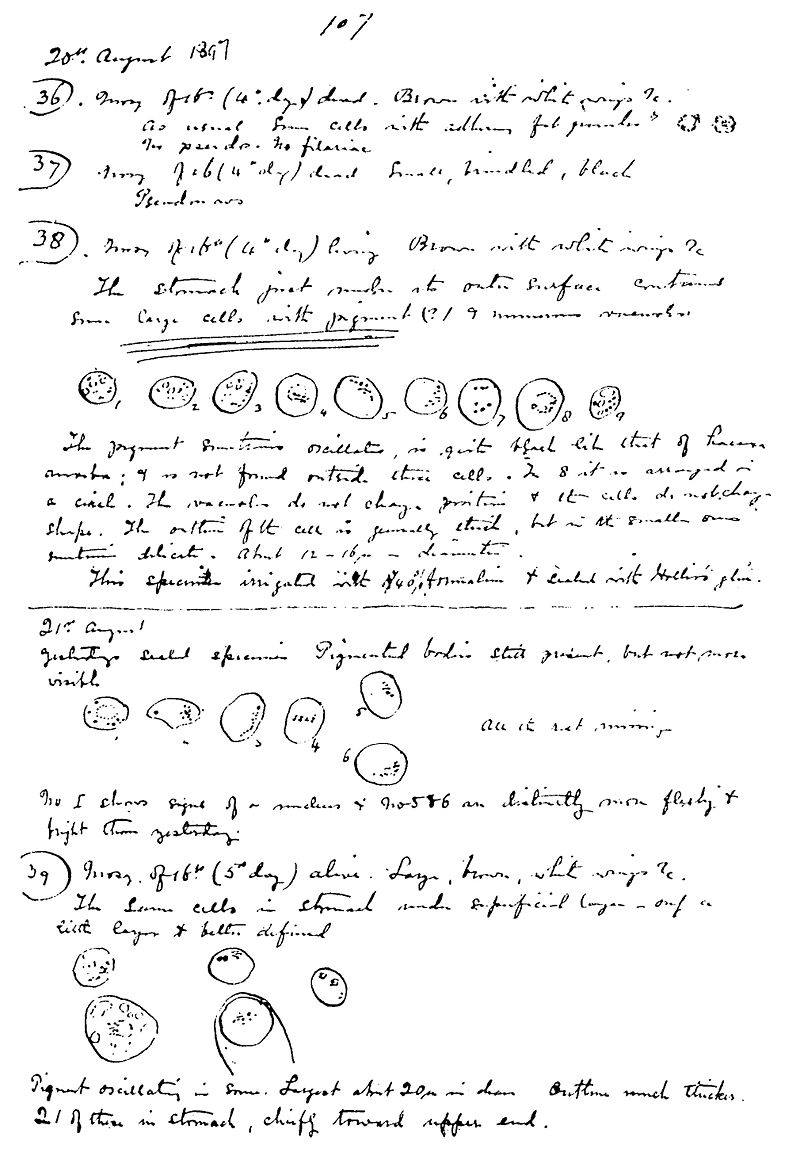 107
20th August 1897
36. Mosq of 16th (4th day) dead. Brown with white wings &c.
As usual some cells with adhering fat granules
No pseudo. No filariae
37 Mosq of 16 (4th day) dead Small, brindled, black
Pseudonavs
38. Mosq of 16th (4th day) living Brown with white wings &c
The stomach just under its outer surface contains
some large cells with pigment (?) & numerous vacuoles
1 2 3 4 5 6 7 8 9
The pigment sometimes oscillates, is quite black like that of haem
amoeba; & is not found outside these cells. In 8 it is arranged in
a circle. The vacuoles do not change position & the cells do not change
shape. The outline of the cell is generally thick, but in the smaller ones
sometimes delicate. About 12-16µ in diameter.
This specimen irrigated with 40% formalin & sealed with Hollis's glue.
21st August
Yesterdays sealed specimen Pigmented bodies still present, but not more
visible
3 4 5 6
All the rest missing
No 1 shows signs of a nucleus & No 5 & 6 are distinctly more fleshy &
bright than yesterday.
39 Mosq. of 16th (5th day) alive. Large, brown, white wings &c.
The same cells in stomach under superficial layer - only a
little larger & better defined
Pigment oscillating in some. Largest about 20µ in diam Outline much thicker.
21 of these in stomach, chiefly toward upper end.